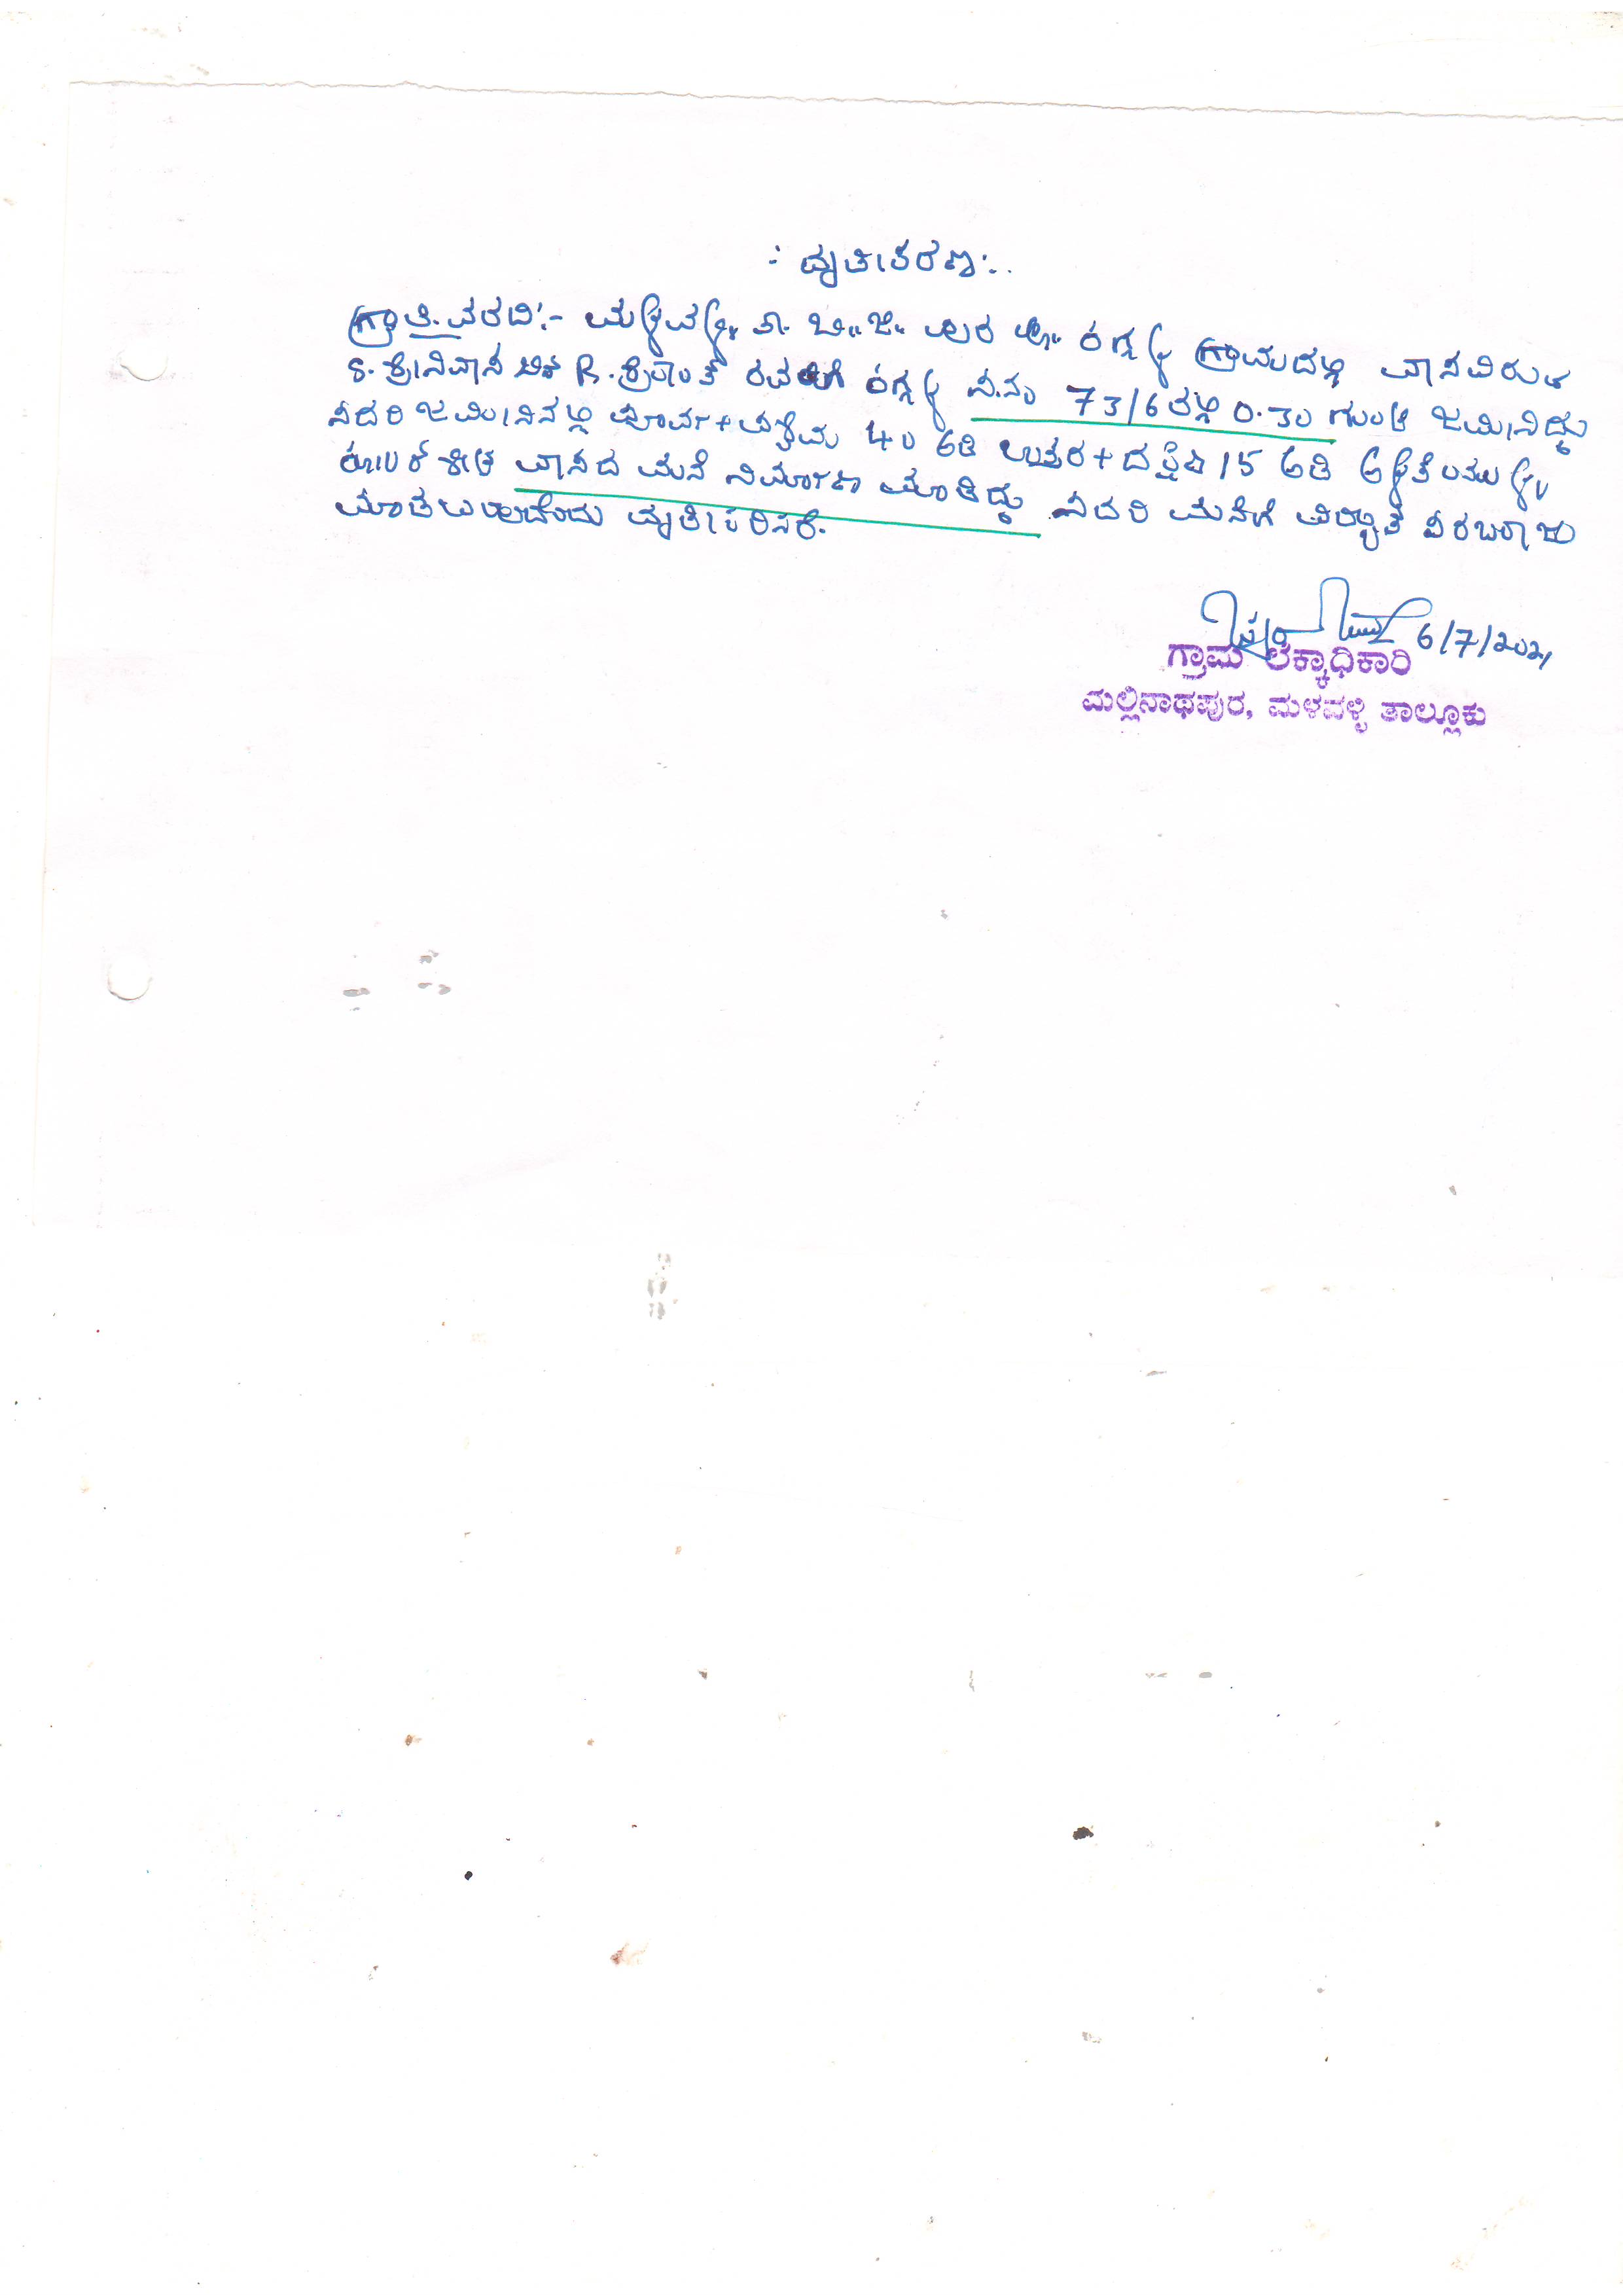 : ದೃಢೀಕರಣ :
ಗ್ರಾತಿ. ವರದಿ:- ಮಳವಳ್ಳಿ ತಾ. ಬಿ.ಜಿ. ಪುರ ಹೋ. ಗ್ರಾಮದಲ್ಲಿ ವಾಸವಿರುವ
S. ಶ್ರೀನಿವಾಸ R. ಸ.ನಂ 73/6 ರಲ್ಲಿ 0.30 ಗುಂಟೆ ಜಮೀನಿದ್ದು
ಸದರಿ ಜಮೀನಿನಲ್ಲಿ ಪೂರ್ವ+ಪಶ್ಚಿಮ 40 ಅಡಿ ಉತ್ತರ+ದಕ್ಷಿಣ 15 ಅಡಿ ಅಳತೆಯಲ್ಲಿ
ಶೀಟ್ ವಾಸದ ಮನೆ ನಿರ್ಮಾಣ ಮಾಡಿದ್ದು ಸದರಿ ಮನೆಗೆ ವಿದ್ಯುತ್ ಸರಬರಾಜು
ಮಾಡಬಹುದೆಂದು ದೃಢೀಕರಿಸಿದೆ.
6/7/2021
ಗ್ರಾಮ ಲೆಕ್ಕಾಧಿಕಾರಿ
ಮಲ್ಲಿನಾಥಪುರ, ಮಳವಳ್ಳಿ ತಾಲ್ಲೂಕು